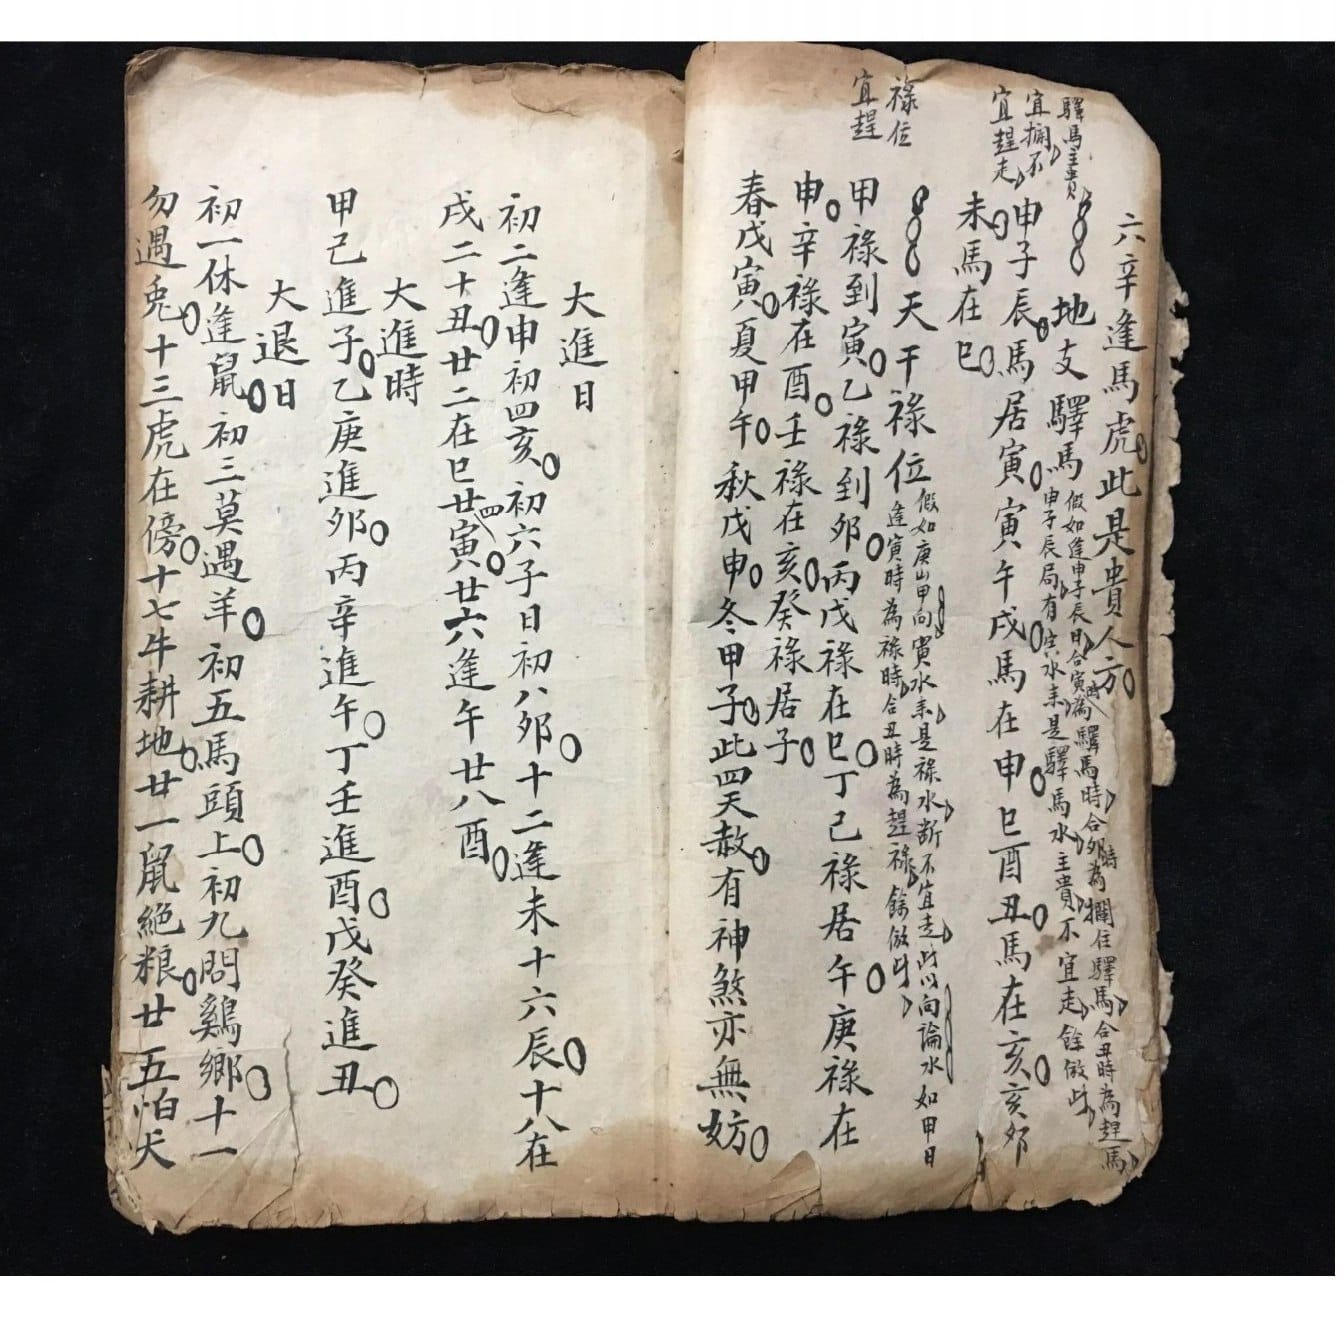 六辛逢馬虎此是貴人方
驛馬主貴
宜攔不
宜趕走
地支驛馬
假如逢申子辰日合寅時為驛馬時合卯時為攔住驛馬合丑時為趕馬
申子辰局有寅水来是驛馬水主貴不宜走餘倣此
申子辰馬居寅寅午戌馬在申巳酉丑馬在亥亥卯
未馬在巳
祿位
宜趕
天干祿位
假如庚山甲向寅水来是祿水断不宜走此以向論水如甲日
逢寅時為祿時合丑時為趕祿餘倣此
甲祿到寅乙祿到卯丙戊祿在巳丁己祿居午庚祿在
申辛祿在酉壬祿在亥癸祿居子
春戊寅夏甲午秋戊申冬甲子此四天赦有神煞亦無妨
大進日
初二逢申初四亥初六子日初八卯十二逢未十六辰十八在
戌二十丑廿二在巳廿四寅廿六逢午廿八酉
大進時
甲己進子乙庚進卯丙辛進午丁壬進酉戊癸進丑
大退日
初一休逢鼠初三莫遇羊初五馬頭上初九問鷄鄉十一
勿遇兎十三虎在傍十七牛耕地廿一鼠絶粮廿五怕犬